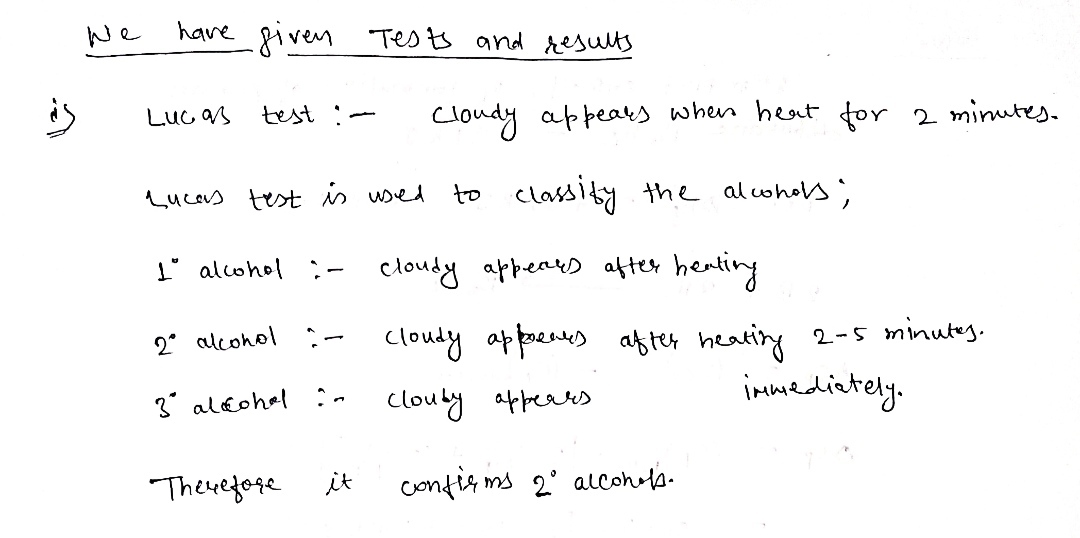 We have given Tests and results
i) Lucas test :- Cloudy appears when heat for 2 minutes.
Lucas test is used to classify the alcohols;
1° alcohol :- cloudy appears after heating
2° alcohol :- cloudy appears after heating 2-5 minutes.
3° alcohol :- clouby appears immediately.
Therefore it confirms 2° alcohols.